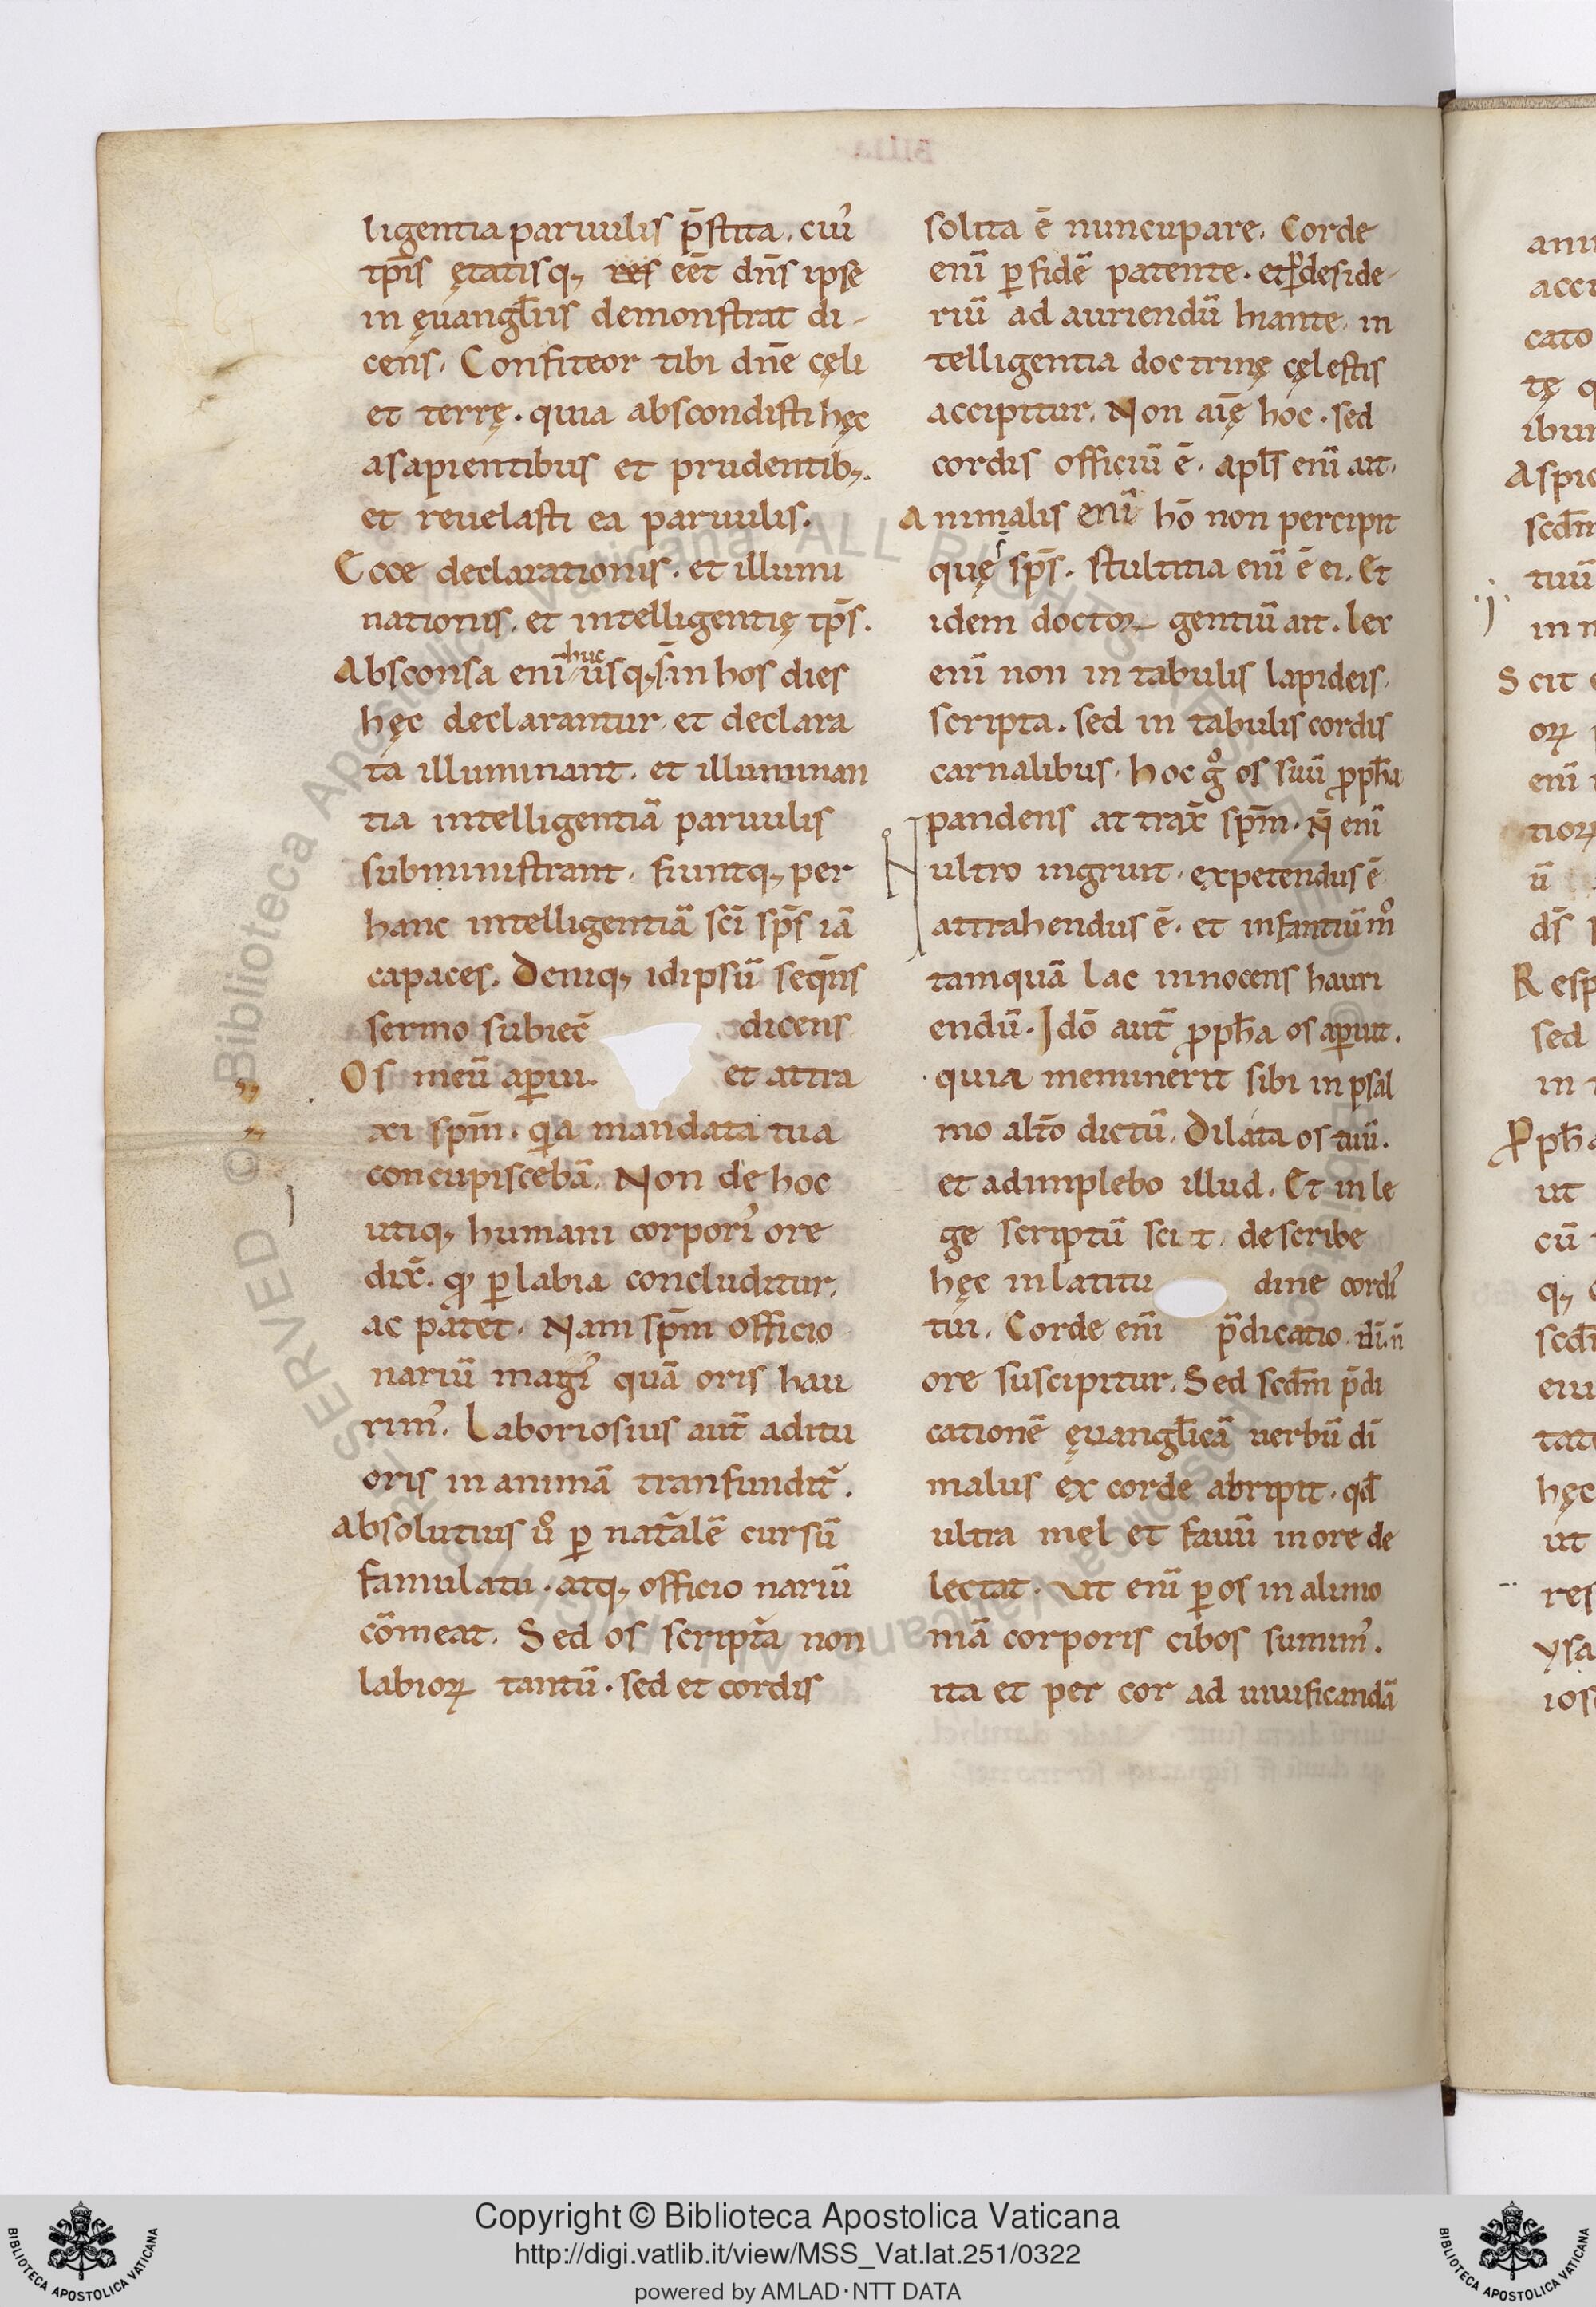 ligentia paruulis p̄stita. cui᾽
tp̄is ętatisq; res eēt dn̄s ipse
in ęuangl̄iis demonstrat di-
cens. Confiteor tibi dn̄e cęli
et terrę. quia abscondisti hęc
a sapientibus et prudentib;.
et reuelasti ea paruulis.
Ecce declarationis. et illumi
nationis. et intelligentię tp̄s.
Absconsa enī huc usq; s̄ in hos dies
hęc declarantur et declara
ta illuminant. et illuminan
tia intelligentiā paruulis
subministrant. fiuntq; per
hanc intelligentiā sc̄i sp̄s iā
capaces. Deniq; id ipsū seqn̄s
sermo subiec̄ dicens
Os meū aꝑui. et attra
xi sp̄m. q̄a mandata tua
concupiscebā. Non de hoc
utiq; humani corpori᾽ ore
dix̄. qͥ ꝑ labia concluditur.
ac patet. Nam sp̄m officio
nariū magi᾽ quā oris hau
rim᾽. Laboriosius aut̄ aditu
oris in animā transfundit᷑.
Absolutius u̾ ꝑ nat᷑alē cursū
famulatu. atq; officio nariū
cōmeat. Sed os script᷑a non
labioꝝ tantū. sed et cordis
solita ē nuncupare. Corde
enī ꝑ fidē patente. et ꝑ deside-
riū ad auriendū hiante. in
telligentia doctrinę cęlestis
accipitur. Non aīę hoc. sed
cordis officiū ē. apl̄s enī ait.
Animalis enī hō non percipit
quę s̄ sp̄s. stultitia enī ē ei. Et
idem doctor gentiū ait. lex
enī non in tabulis lapideis.
scripta. sed in tabulis cordis
carnalibus. hoc g̊ os suū ꝓph̄a
pandens attrax̄ sp̄m. N̄ enī
ultro ingruit. expetendus ē
attrahendus ē. et infantiū m̊
tamquā lac innocens hauri
endū. Idō aut̄ ꝓph̄a os aꝑuit.
quia meminerit sibi in psal
mo alt̄o dictū. Dilata os tuū.
et adimplebo illud. Et in le
ge scriptū scit. describe
hęc in latitu dine cordi᾽
tui. Corde enī p̄dicatio di. n̄
ore suscipitur. Sed scd̄m p̄di
cationē ęuangl̄icā uerbū dī
malus ex corde abripit. qd̄
ultra mel et fauū in ore de
lectat. Vt enī ꝑ os in alimo
niā corporis cibos sumim᾽.
ita et per cor ad uiuificandā
cato
tę
Aspic
scd̄m
tuū
in
Scit
oꝝ
enī
tioꝝ
ū
ds̄
Resp
sed
in
Ꝓph̄a
ut
cū
q;
scd̄
eiu
tat
hęc
ut
res
ysa
ios
© Biblioteca Apostolica Vaticana ALL RIGHTS RESERVED
Copyright © Biblioteca Apostolica Vaticana
http://digi.vatlib.it/view/MSS_Vat.lat.251/0322
powered by AMLAD·NTT DATA
BIBLIOTECA APOSTOLICA VATICANA
BIBLIOTECA APOSTOLICA VATICANA